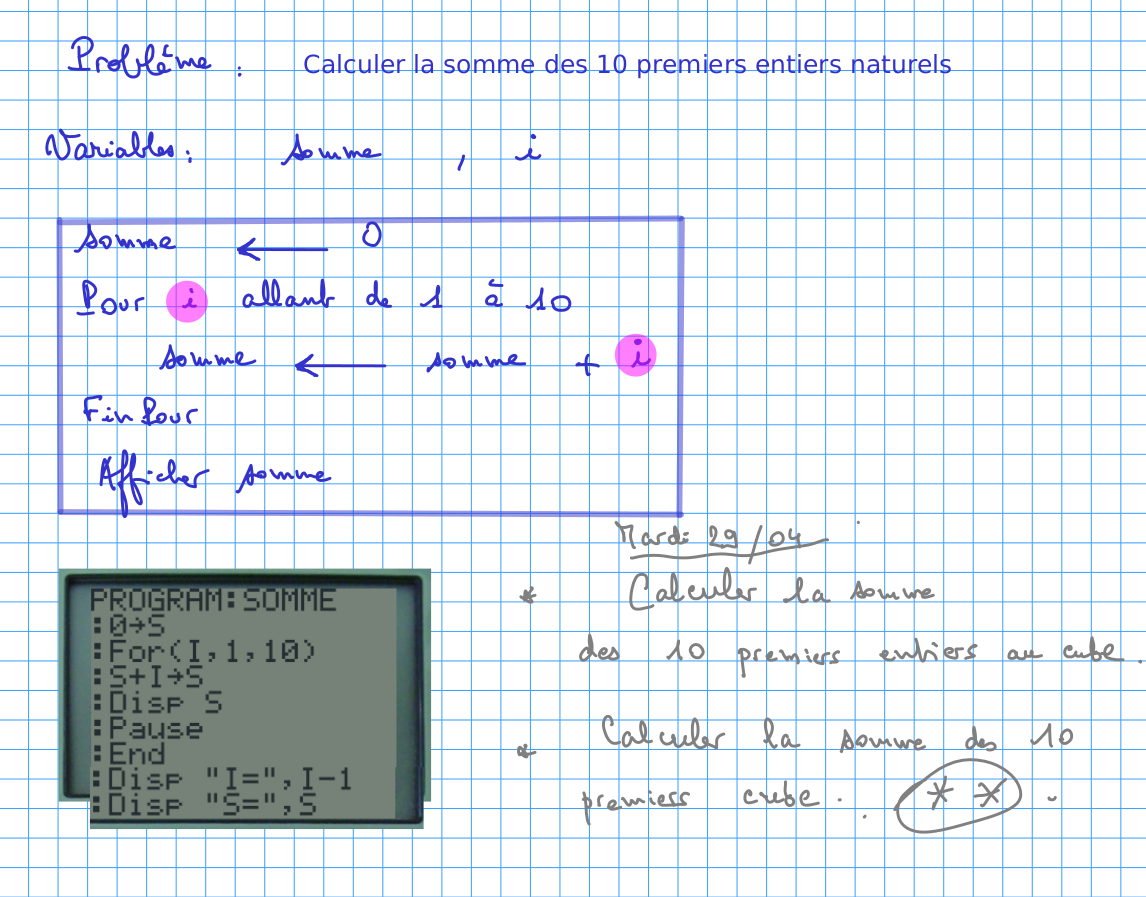 Problème : Calculer la somme des 10 premiers entiers naturels
Variables : somme , i
somme ← 0
Pour i allant de 1 à 10
somme ← somme + i
FinPour
Afficher somme
Mardi 29/04
* Calculer la somme
des 10 premiers entiers au cube.
* Calculer la somme des 10
premiers cube. ** .
PROGRAM:SOMME
:0→S
:For(I,1,10)
:S+I→S
:Disp S
:Pause
:End
:Disp "I=",I-1
:Disp "S=",S